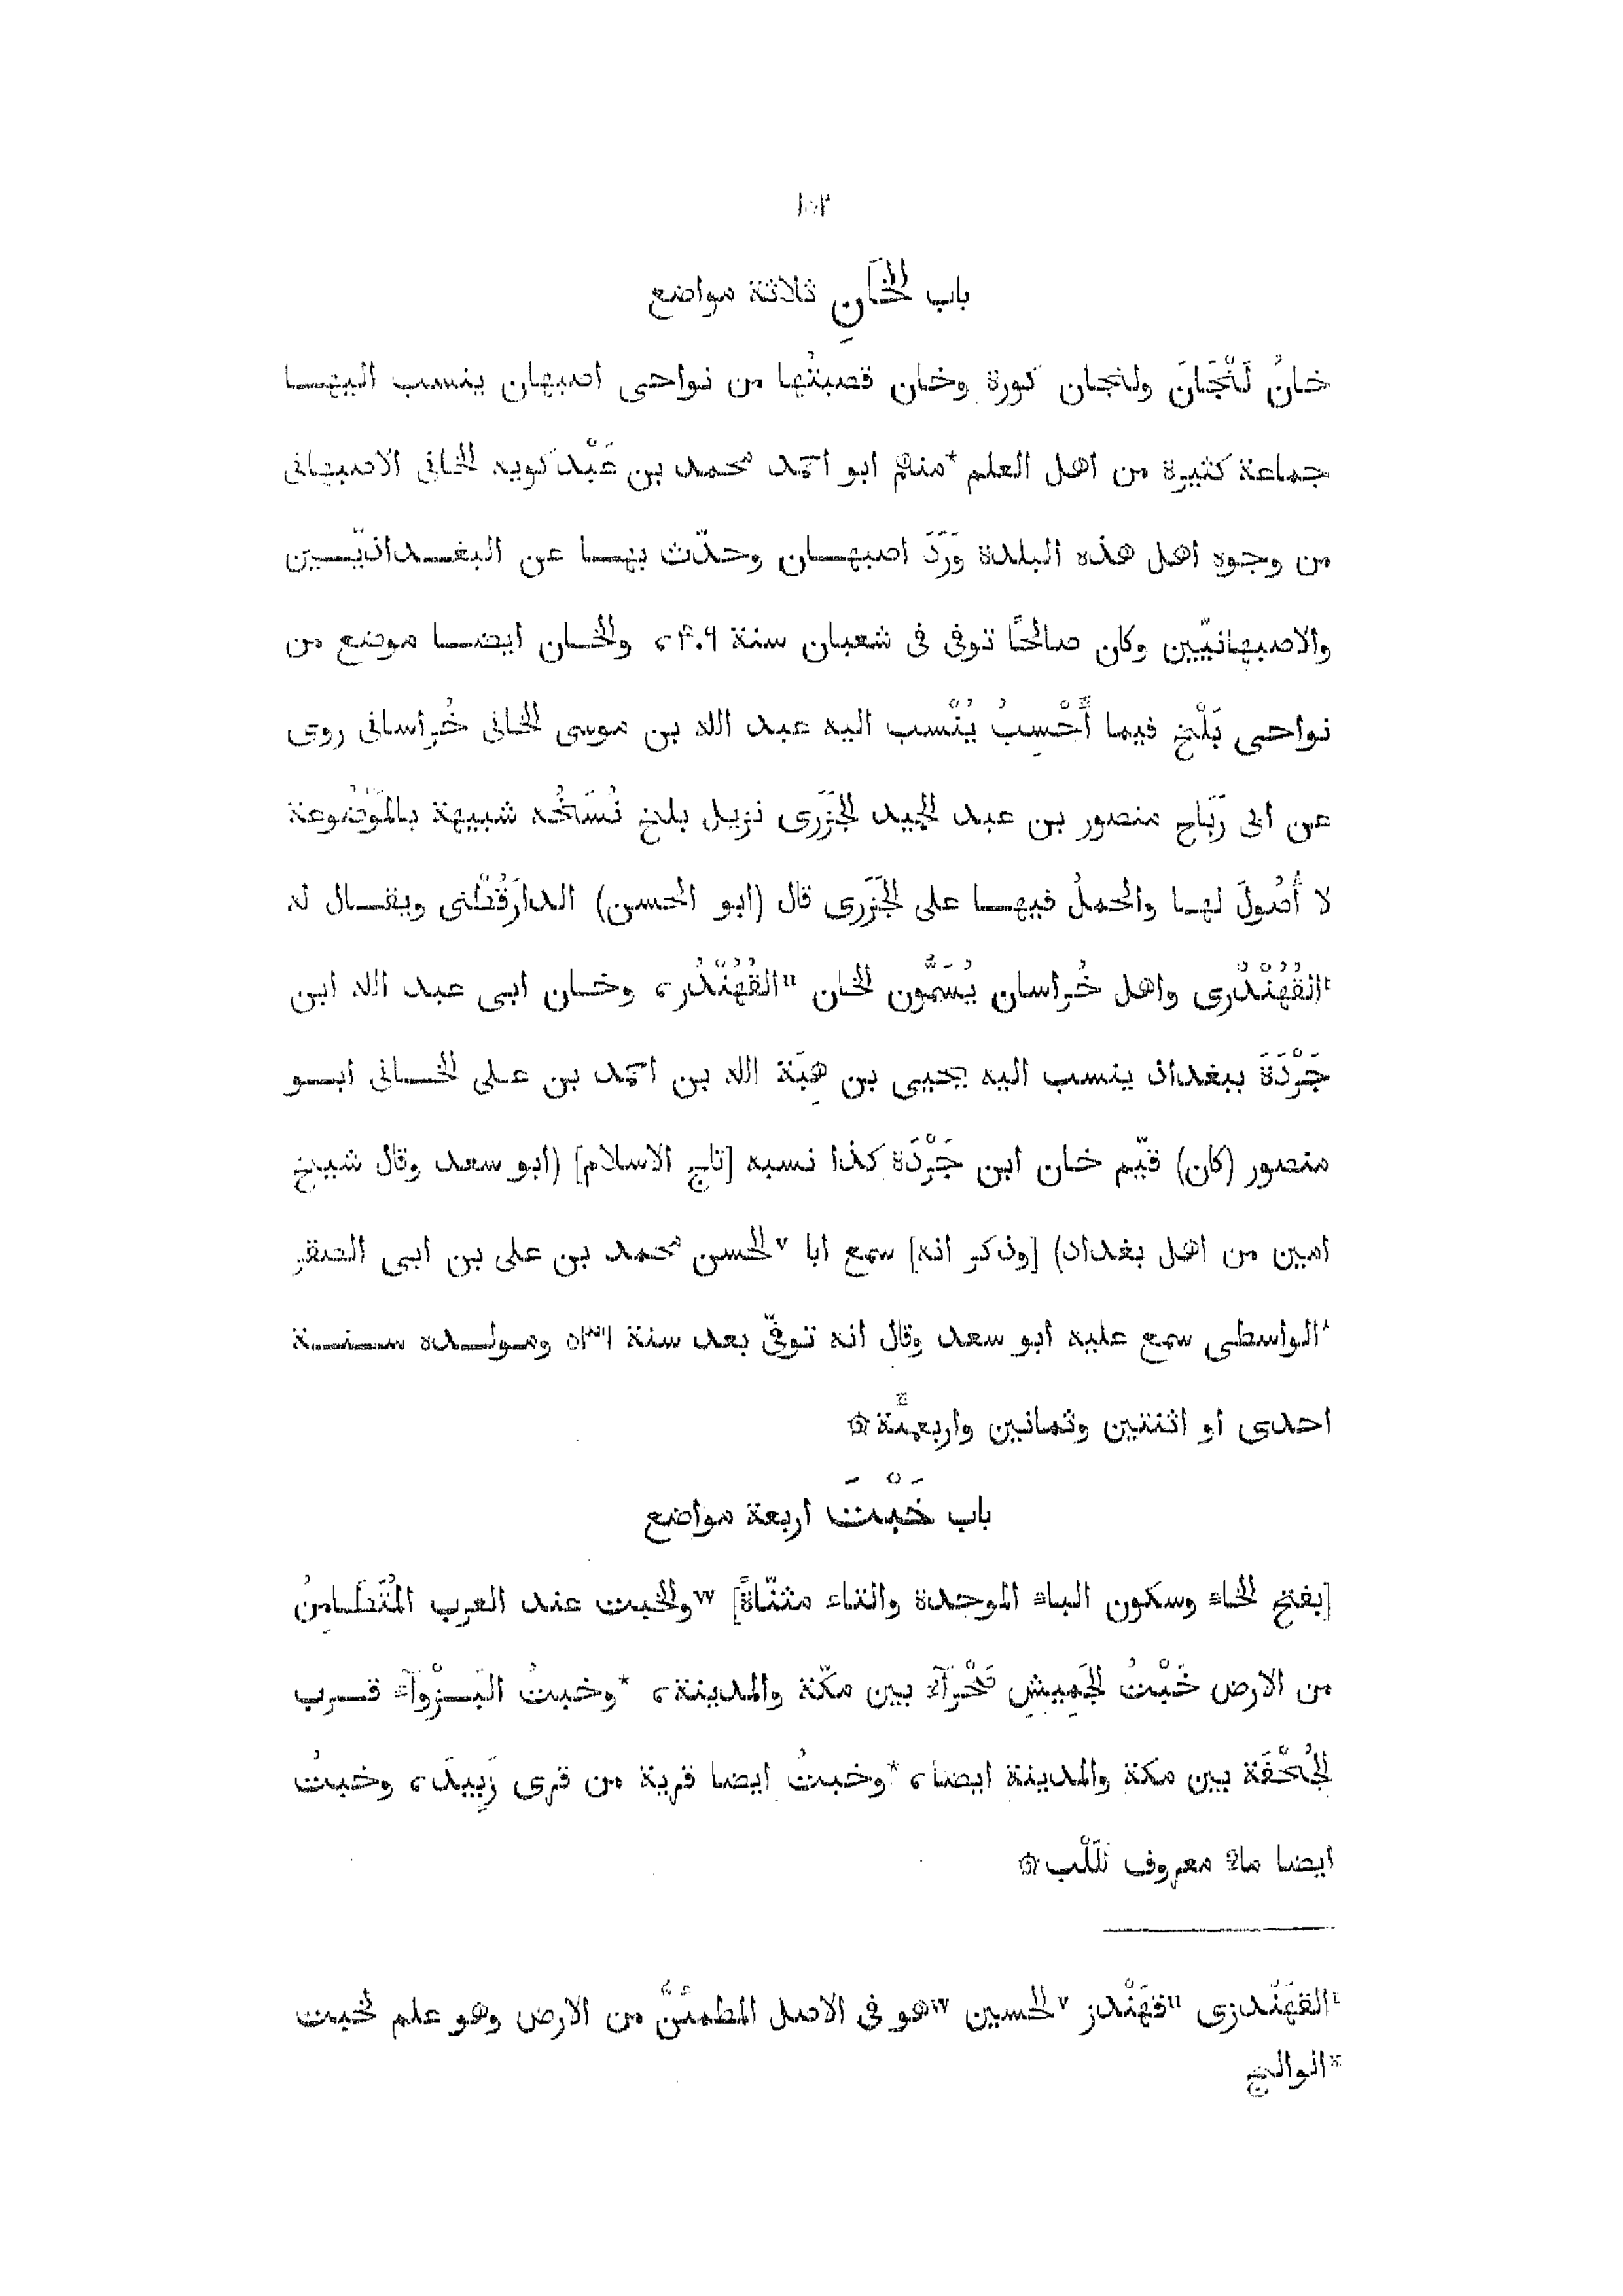 ١٥٢
باب الخَانِ ثلاثة مواضع
خانُ لَنْجَانَ ولنجان كورة وخان قصبتُها من نواحى اصبهان ينسب اليها
جماعة كثيرة من اهل العلم *منهم ابو احمد محمد بن عَبْدكويه الخانى الاصبهانى
من وجوه اهل هذه البلدة وَرَدَ اصبهان وحدّث بها عن البغداذيّين
والاصبهانيّين وكان صالحًا توفى فى شعبان سنة ۴۰۹، والخان ايضا موضع من
نواحى بَلْخ فيما أَحْسِبُ يُنْسب اليه عبد الله بن موسى الخانى خُراسانى روى
عن ابى رَبَاح منصور بن عبد الحميد الجَزَرى نزيل بلخ نُسَخُه شبيهة بالمَوْضُوعة
لا أُصُولَ لها والحملُ فيها على الجَزَرى قال (ابو الحسن) الدارَقُطْنى ويقال له
ᵗالقُهُنْدُرى واهل خُراسان يُسَمُّون الخان ᵘالقُهُنْدُر، وخان ابى عبد الله ابن
جَرْدَةَ ببغداذ ينسب اليه يحيى بن هِبَة الله بن احمد بن على الخانى ابو
منصور (كان) قيّم خان ابن جَرْدَة كذا نسبه [تاج الاسلام] (ابو سعد وقال شيخ
امين من اهل بغداد) [وذكر انه] سمع ابا ᵛالحسن محمد بن على بن ابى الصقر
الواسطى سمع عليه ابو سعد وقال انه توفّى بعد سنة ٥٣١ ومولده سنة
احدى او اثنتين وثمانين واربعمئة ۞
باب خَبْتَ اربعة مواضع
[بفتح الخاء وسكون الباء الموحدة والتاء مثنّاةً] ʷوالخبت عند العرب المُتَطَامِنُ
من الارض خَبْتُ الجَمِيشِ صَحْرآء بين مكّة والمدينة، *وخبتُ البَزْوآء قرب
الجُحْفَة بين مكة والمدينة ايضا، *وخبتُ ايضا قرية من قرى زَبِيدَ، وخبتُ
ايضا ماء معروف لكَلْب ۞
ᵗالقهَنْدزى ᵘقهَنْدز ᵛالحسين ʷهو فى الاصل المطمئنّ من الارض وهو علم لخبت